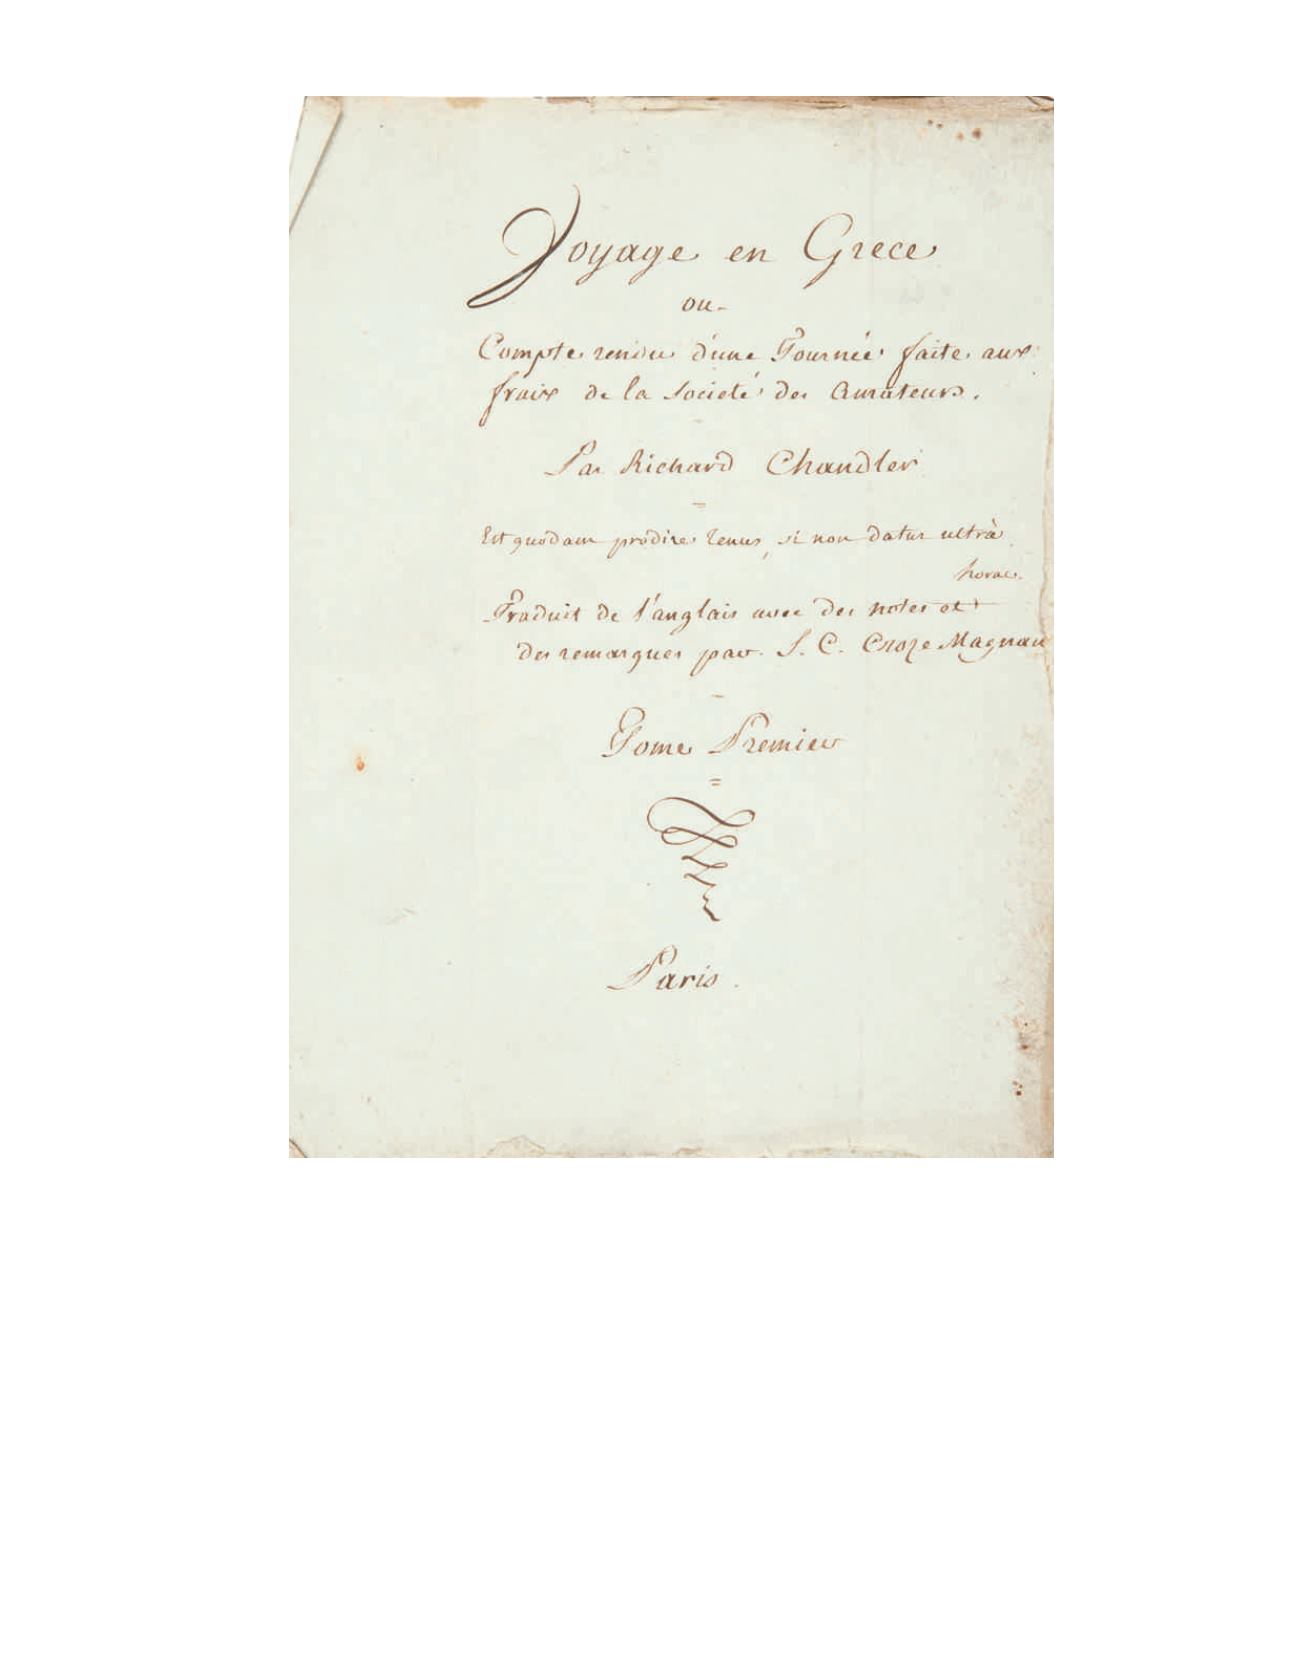 Voyage en Grece
ou
Compte rendu d'une Tournée faite aux
fraix de la Societé des Amateurs.
Par Richard Chandler
Est quodam prodire tenus, si non datur ultrà
horac.
Traduit de l'anglais avec des notes et
des remarques par S. C. Croze Magnan
Tome Premier
=
Paris.